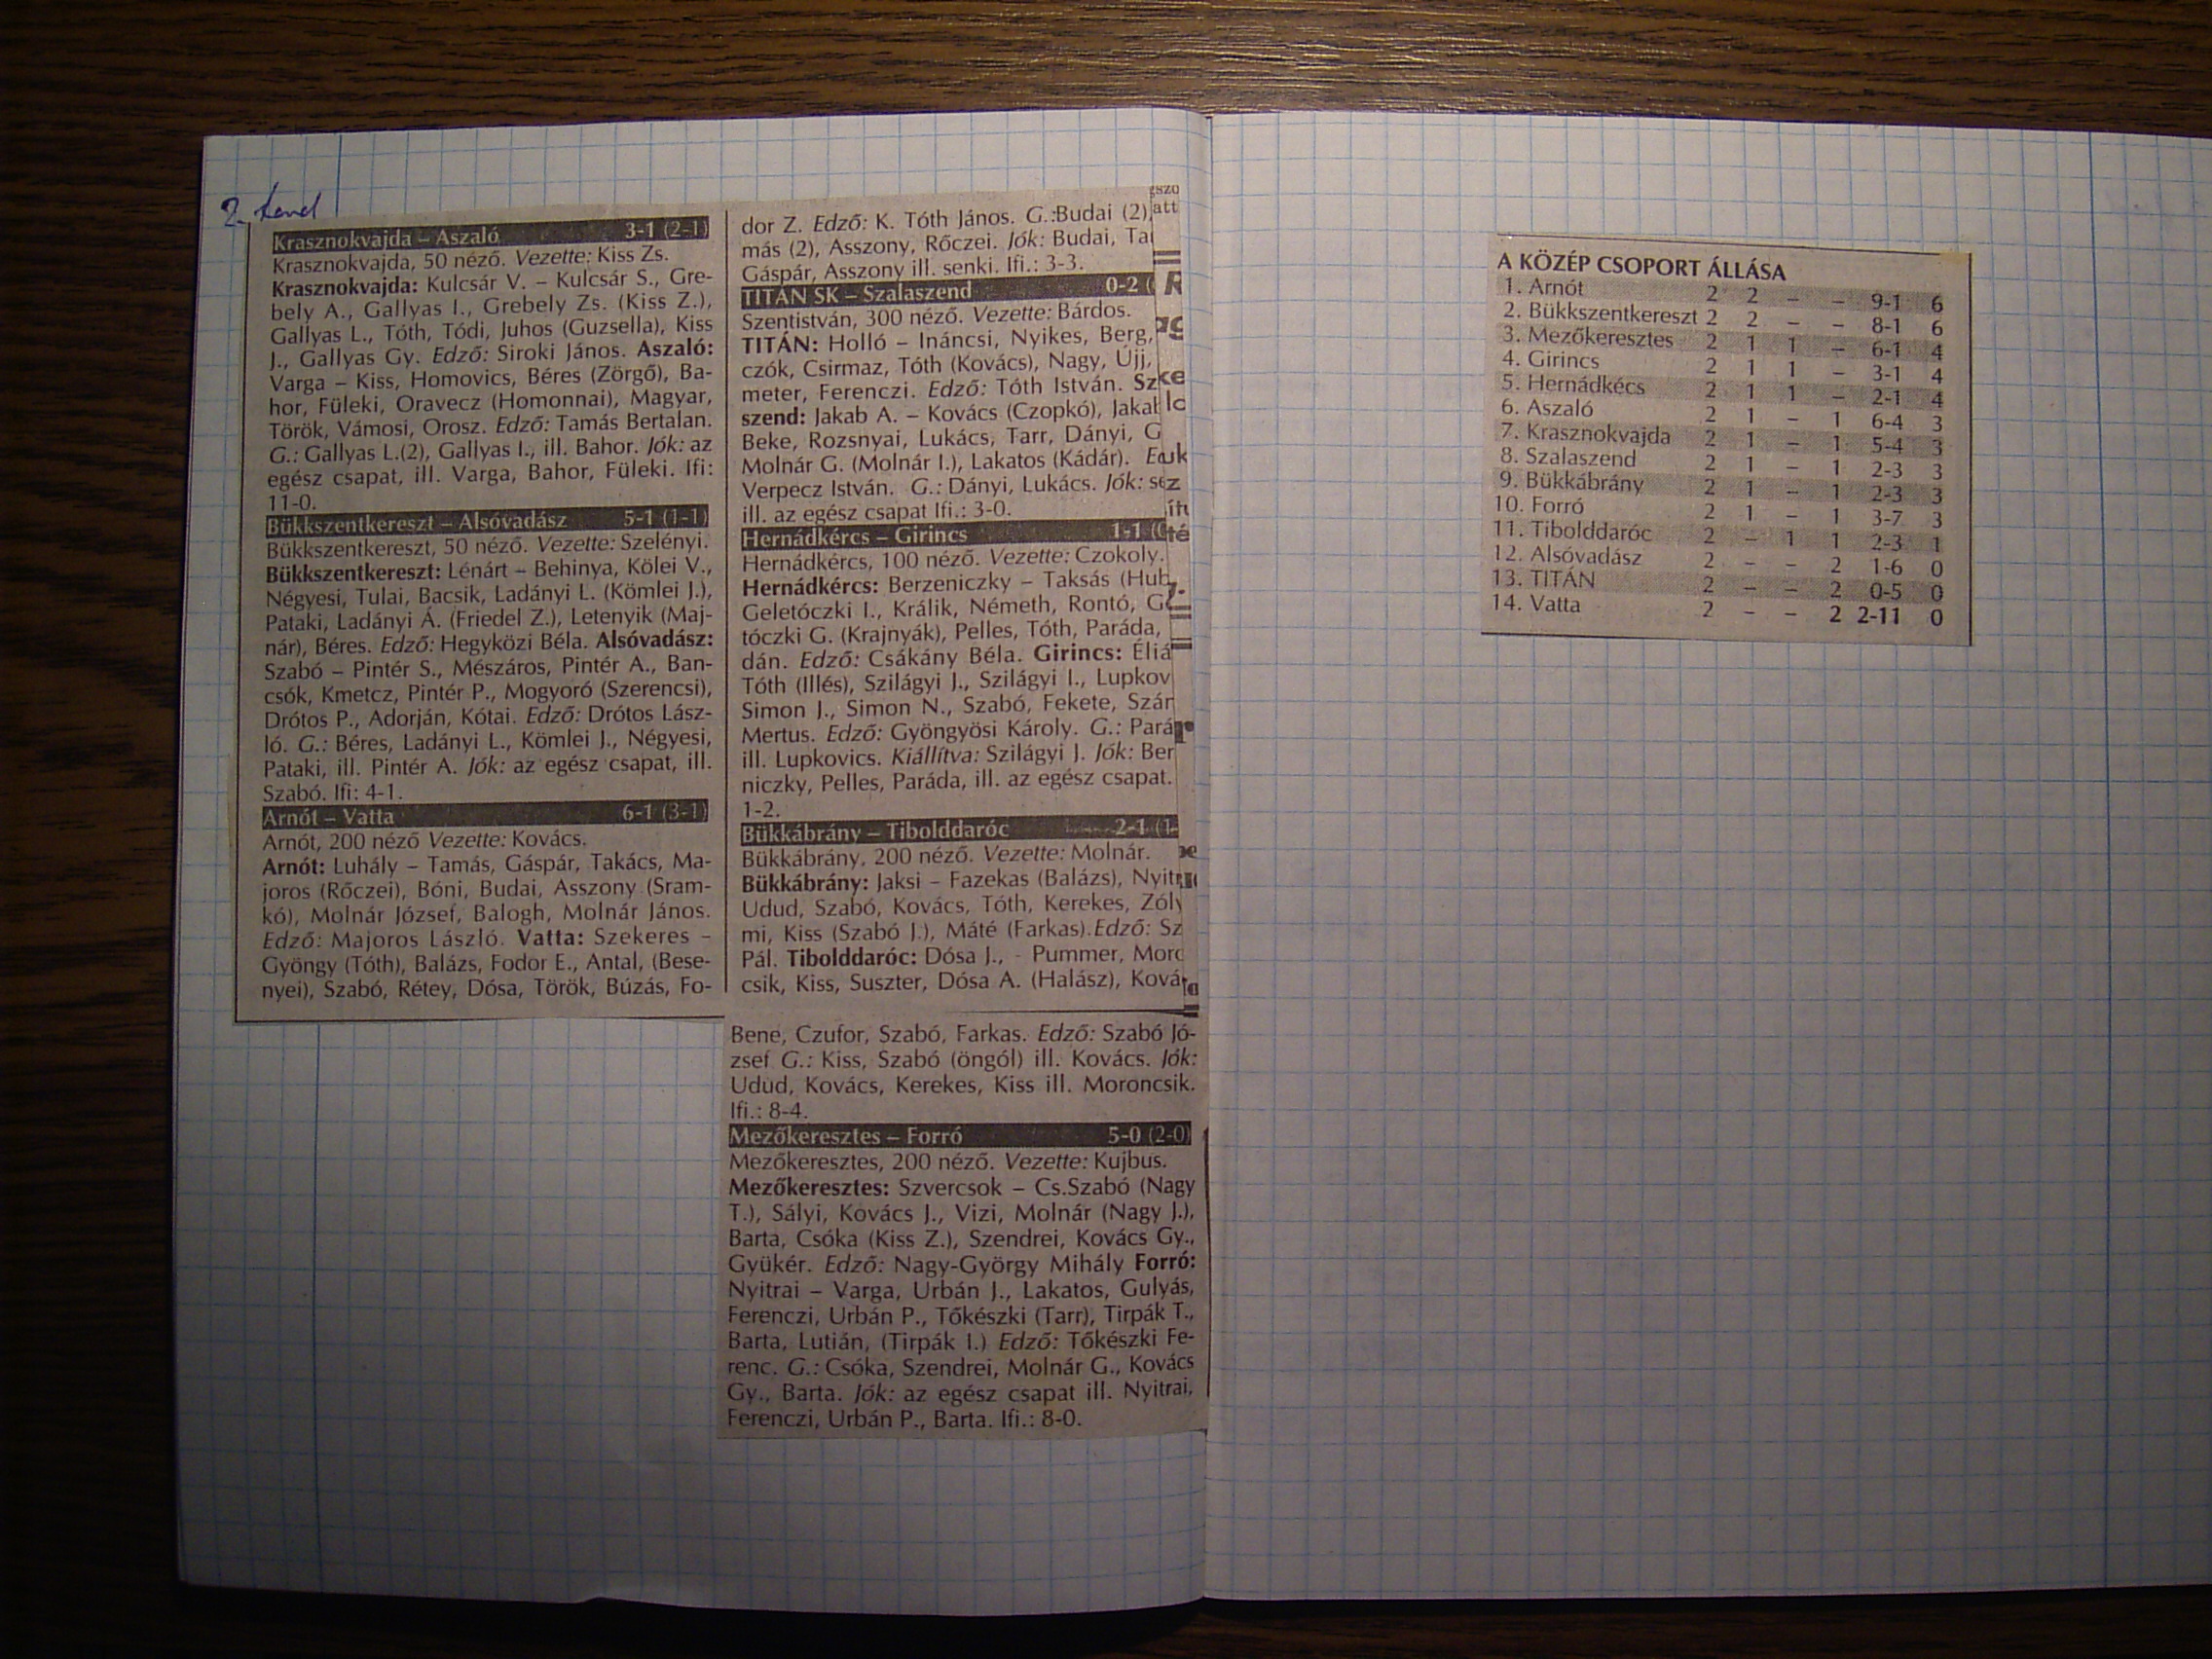 2. ford
Krasznokvajda – Aszaló 3-1 (2-1)
Krasznokvajda, 50 néző. Vezette: Kiss Zs.
Krasznokvajda: Kulcsár V. – Kulcsár S., Gre-
bely A., Gallyas I., Grebely Zs. (Kiss Z.),
Gallyas L., Tóth, Tódi, Juhos (Guzsella), Kiss
J., Gallyas Gy. Edző: Siroki János. Aszaló:
Varga – Kiss, Homovics, Béres (Zörgő), Ba-
hor, Füleki, Oravecz (Homonnai), Magyar,
Török, Vámosi, Orosz. Edző: Tamás Bertalan.
G.: Gallyas L.(2), Gallyas I., ill. Bahor. Jók: az
egész csapat, ill. Varga, Bahor, Füleki. Ifi:
11-0.
Bükkszentkereszt – Alsóvadász 5-1 (1-1)
Bükkszentkereszt, 50 néző. Vezette: Szelényi.
Bükkszentkereszt: Lénárt – Behinya, Kölei V.,
Négyesi, Tulai, Bacsik, Ladányi L. (Kömlei J.),
Pataki, Ladányi Á. (Friedel Z.), Letenyik (Maj-
nár), Béres. Edző: Hegyközi Béla. Alsóvadász:
Szabó – Pintér S., Mészáros, Pintér A., Ban-
csók, Kmetcz, Pintér P., Mogyoró (Szerencsi),
Drótos P., Adorján, Kótai. Edző: Drótos Lász-
ló. G.: Béres, Ladányi L., Kömlei J., Négyesi,
Pataki, ill. Pintér A. Jók: az egész csapat, ill.
Szabó. Ifi: 4-1.
Arnót – Vatta 6-1 (3-1)
Arnót, 200 néző Vezette: Kovács.
Arnót: Luhály – Tamás, Gáspár, Takács, Ma-
joros (Rőczei), Bóni, Budai, Asszony (Sram-
kó), Molnár József, Balogh, Molnár János.
Edző: Majoros László. Vatta: Szekeres –
Gyöngy (Tóth), Balázs, Fodor E., Antal, (Bese-
nyei), Szabó, Rétey, Dósa, Török, Búzás, Fo-
dor Z. Edző: K. Tóth János. G.:Budai (2),
más (2), Asszony, Rőczei. Jók: Budai, Ta
Gáspár, Asszony ill. senki. Ifi.: 3-3.
TITÁN SK – Szalaszend 0-2 (
Szentistván, 300 néző. Vezette: Bárdos.
TITÁN: Holló – Ináncsi, Nyikes, Berg,
czók, Csirmaz, Tóth (Kovács), Nagy, Újj,
meter, Ferenczi. Edző: Tóth István. Sz
szend: Jakab A. – Kovács (Czopkó), Jakal
Beke, Rozsnyai, Lukács, Tarr, Dányi, G
Molnár G. (Molnár I.), Lakatos (Kádár). Ed
Verpecz István. G.: Dányi, Lukács. Jók: se
ill. az egész csapat Ifi.: 3-0.
Hernádkércs – Girincs 1-1 (
Hernádkércs, 100 néző. Vezette: Czokoly.
Hernádkércs: Berzeniczky – Taksás (Hub
Geletóczki I., Králik, Németh, Rontó, Ge
tóczki G. (Krajnyák), Pelles, Tóth, Paráda,
dán. Edző: Csákány Béla. Girincs: Éliá
Tóth (Illés), Szilágyi J., Szilágyi I., Lupkov
Simon J., Simon N., Szabó, Fekete, Szár
Mertus. Edző: Gyöngyösi Károly. G.: Pará
ill. Lupkovics. Kiállítva: Szilágyi J. Jók: Ber
niczky, Pelles, Paráda, ill. az egész csapat.
1-2.
Bükkábrány – Tibolddaróc 2-1 (1-
Bükkábrány, 200 néző. Vezette: Molnár.
Bükkábrány: Jaksi – Fazekas (Balázs), Nyitr
Udud, Szabó, Kovács, Tóth, Kerekes, Zóly
mi, Kiss (Szabó J.), Máté (Farkas).Edző: Sz
Pál. Tibolddaróc: Dósa J., - Pummer, Moro
csik, Kiss, Suszter, Dósa A. (Halász), Ková
Bene, Czufor, Szabó, Farkas. Edző: Szabó Jó-
zsef G.: Kiss, Szabó (öngól) ill. Kovács. Jók:
Udud, Kovács, Kerekes, Kiss ill. Moroncsik.
Ifi.: 8-4.
Mezőkeresztes – Forró 5-0 (2-0)
Mezőkeresztes, 200 néző. Vezette: Kujbus.
Mezőkeresztes: Szvercsok – Cs.Szabó (Nagy
T.), Sályi, Kovács J., Vizi, Molnár (Nagy J.),
Barta, Csóka (Kiss Z.), Szendrei, Kovács Gy.,
Gyükér. Edző: Nagy-György Mihály Forró:
Nyitrai – Varga, Urbán J., Lakatos, Gulyás,
Ferenczi, Urbán P., Tőkészki (Tarr), Tirpák T.,
Barta, Lutián, (Tirpák I.) Edző: Tőkészki Fe-
renc. G.: Csóka, Szendrei, Molnár G., Kovács
Gy., Barta. Jók: az egész csapat ill. Nyitrai,
Ferenczi, Urbán P., Barta. Ifi.: 8-0.
A KÖZÉP CSOPORT ÁLLÁSA
1. Arnót 2 2 – – 9-1 6
2. Bükkszentkereszt 2 2 – – 8-1 6
3. Mezőkeresztes 2 1 1 – 6-1 4
4. Girincs 2 1 1 – 3-1 4
5. Hernádkécs 2 1 1 – 2-1 4
6. Aszaló 2 1 – 1 6-4 3
7. Krasznokvajda 2 1 – 1 5-4 3
8. Szalaszend 2 1 – 1 2-3 3
9. Bükkábrány 2 1 – 1 2-3 3
10. Forró 2 1 – 1 3-7 3
11. Tibolddaróc 2 – 1 1 2-3 1
12. Alsóvadász 2 – – 2 1-6 0
13. TITÁN 2 – – 2 0-5 0
14. Vatta 2 – – 2 2-11 0